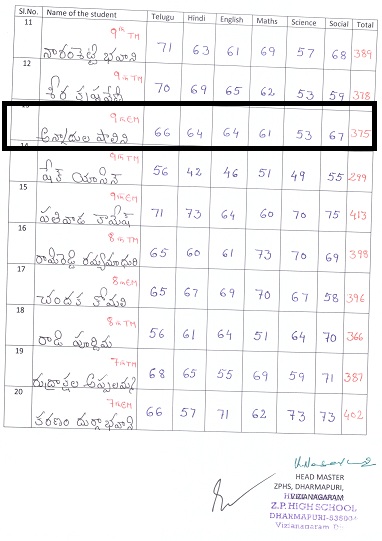 Sl.No. Name of the student Telugu Hindi English Maths Science Social Total
11 9th TM
నారంశెట్టి భవాని 71 63 61 69 57 68 389
12 9th TM
70 69 65 62 53 59 378
9th EM
పాలిని 66 64 64 61 53 67 375
14 9th TM
షేక్ యాసిన్ 56 42 46 51 49 55 299
15 9th EM
పతివాడ రామేష్ 71 73 64 60 70 75 413
16 8th TM
రామిరెడ్డి రమ్యమాధురి 65 60 61 73 70 69 398
17 8th EM
చందక కోమలి 65 67 69 70 67 58 396
18 8th TM
రాడి పూర్ణిమ 56 61 64 51 64 70 366
19 7th TM
రుద్రాక్షల అప్పలమ్మ 68 65 55 69 59 71 387
20 7th EM
కరణం దుర్గాభవాని 66 57 71 62 73 73 402
HEAD MASTER
ZPHS, DHARMAPURI,
VIZIANAGARAM
Z.P. HIGH SCHOOL